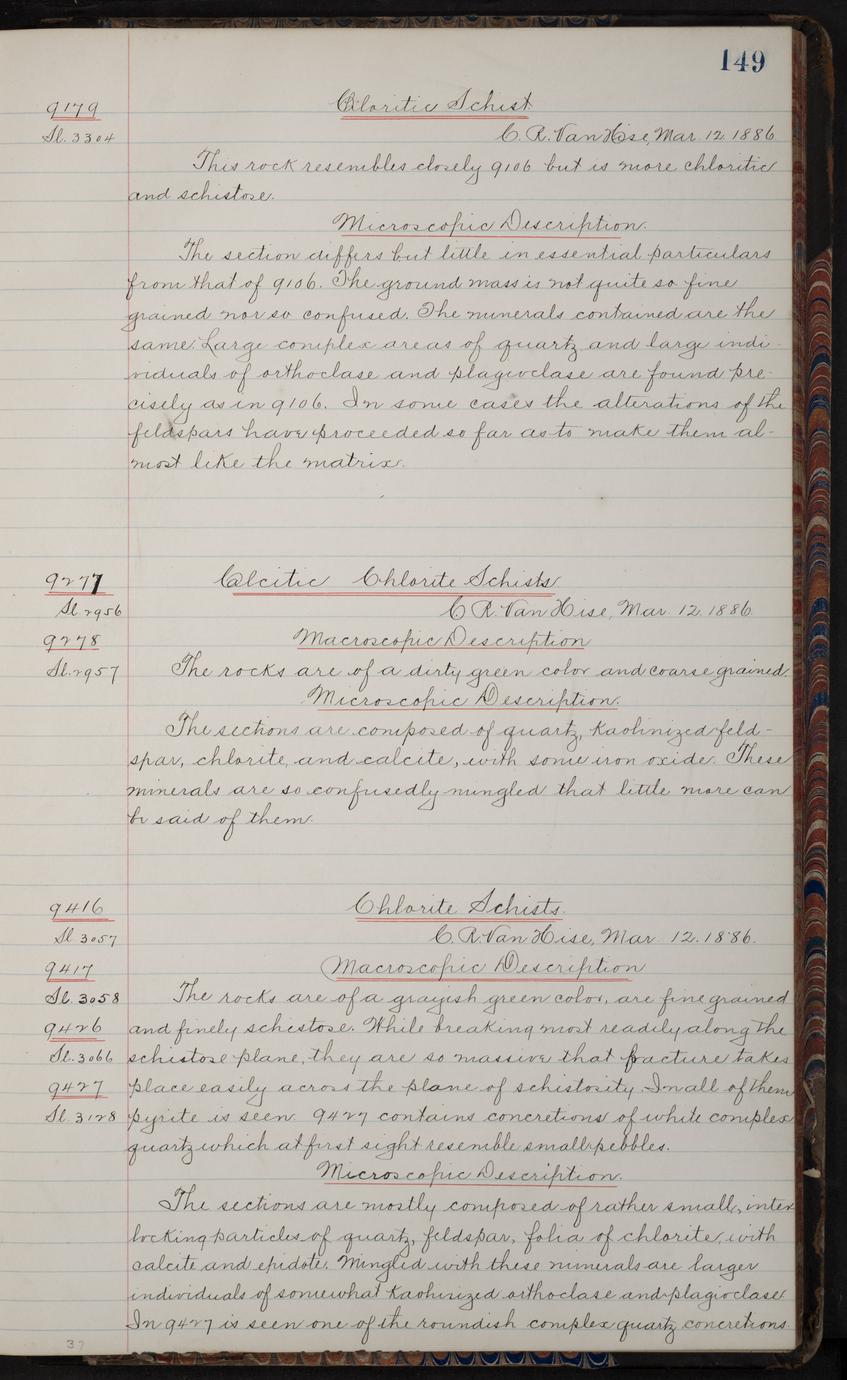 149
9179 Chloritic Schist
Sl. 3304 C. R. Van Hise, Mar. 12. 1886
This rock resembles closely 9106 but is more chloritic
and schistose.
Microscopic Description.
The section differs but little in essential particulars
from that of 9106. The ground mass is not quite so fine
grained nor so confused. The minerals contained are the
same. Large complex areas of quartz and large indi-
viduals of orthoclase and plagioclase are found pre-
cisely as in 9106. In some cases the alterations of the
feldspars have proceeded so far as to make them al-
most like the matrix.
9277 Calcitic Chlorite Schists
Sl. 2956 C. R. Van Hise, Mar. 12. 1886.
9278 Macroscopic Description
Sl. 2957 The rocks are of a dirty green color and coarse grained.
Microscopic Description.
The sections are composed of quartz, kaolinized feld-
spar, chlorite, and calcite, with some iron oxide. These
minerals are so confusedly mingled that little more can
be said of them.
9416 Chlorite Schists.
Sl 3057 C. R. Van Hise, Mar. 12. 1886.
9417 Macroscopic Description
Sl. 3058 The rocks are of a grayish green color, are fine grained
9426 and finely schistose. While breaking most readily along the
Sl. 3066 schistose plane, they are so massive that fracture takes
9427 place easily across the plane of schistosity. In all of them
Sl 3128 pyrite is seen. 9427 contains concretions of white complex
quartz which at first sight resemble small pebbles.
Microscopic Description.
The sections are mostly composed of rather small, inter
locking particles of quartz, feldspar, folia of chlorite, with
calcite and epidote. Mingled with these minerals are larger
individuals of somewhat kaolinized orthoclase and plagioclase
In 9427 is seen one of the roundish complex quartz concretions.
37